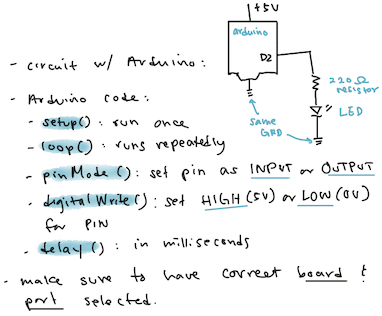 +5V
arduino
D2
- circuit w/ Arduino:
220Ω
resistor
LED
same
GND
- Arduino code:
- setup() : run once
- loop() : runs repeatedly
- pinMode () : set pin as INPUT or OUTPUT
- digitalWrite() : set HIGH (5V) or LOW (0V)
for PIN
- delay() : in milliseconds
- make sure to have correct board &
port selected.